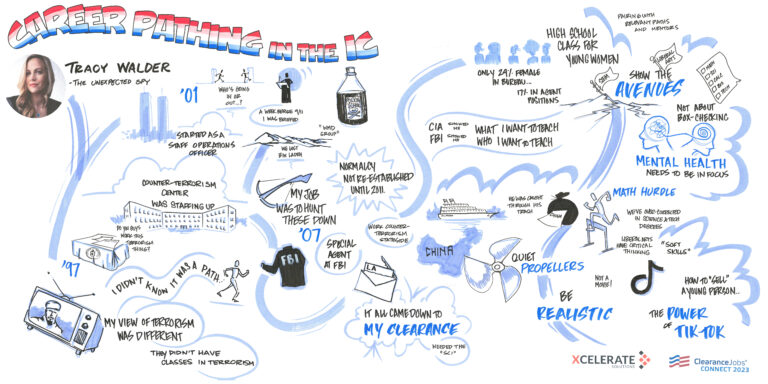 CAREER PATHING IN THE IC
TRACY WALDER
- THE UNEXPECTED SPY
'01
WHO'S BEING
IN OR
OUT...?
A WEEK BEFORE 9/11
I WAS BRIEFED
"WMD
GROUP"
STARTED AS A
STAFF OPERATIONS
OFFICER
WE LOST
BIN LADEN
COUNTER-TERRORISM
CENTER
WAS STAFFING UP
NORMALCY
NOT RE-ESTABLISHED
UNTIL 2011.
MY JOB
WAS TO HUNT
THESE DOWN
DO YOU GUYS
WORK THIS
TERRORISM
THING?
'97
I DIDN'T KNOW IT WAS A PATH.
MY VIEW OF TERRORISM
WAS DIFFERENT
THEY DIDN'T HAVE
CLASSES IN TERRORISM
'07
FBI
SPECIAL
AGENT
AT FBI
WORK COUNTER-
TERRORISM
STATESIDE
LA
IT ALL CAME DOWN TO
MY CLEARANCE
NEEDED THE
"SCI"
HIGH SCHOOL
CLASS FOR
YOUNG WOMEN
ONLY 29% FEMALE
IN BUREAU...
17% IN AGENT
POSITIONS
CIA SHOWED ME WHAT I WANT TO TEACH
FBI SHOWED ME WHO I WANT TO TEACH
HE WAS CAUGHT
THROUGH HIS
TRASH
CHINA
QUIET
PROPELLERS
NOT A
MOVIE!
BE
REALISTIC
PAIRING WITH
RELEVANT PATHS
AND MENTORS
STEM
LIBERAL ARTS
SHOW THE
AVENUES
NOT ABOUT
BOX-CHECKING
MENTAL HEALTH
NEEDS TO BE IN FOCUS
MATH HURDLE
WE'VE OVER-CORRECTED
IN SCIENCE & TECH
DEGREES
LIBERAL ARTS
HAVE CRITICAL
THINKING
"SOFT
SKILLS"
HOW TO "SELL"
A YOUNG PERSON...
THE POWER
OF
TIKTOK
XCELERATE
SOLUTIONS
ClearanceJobs
CONNECT 2023